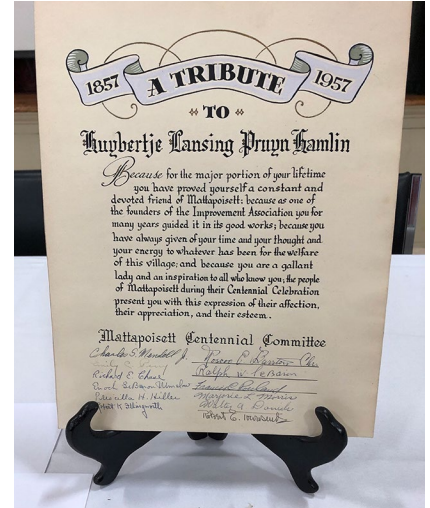 1857 A TRIBUTE 1957
TO
Huybertje Lansing Pruyn Hamlin
Because for the major portion of your lifetime
you have proved yourself a constant and
devoted friend of Mattapoisett; because as one of
the founders of the Improvement Association you for
many years guided it in its good works; because you
have always given of your time and your thought and
your energy to whatever has been for the welfare
of this village; and because you are a gallant
lady and an inspiration to all who know you; the people
of Mattapoisett during their Centennial Celebration
present you with this expression of their affection,
their appreciation, and their esteem.
Mattapoisett Centennial Committee
Charles S. Mendell Jr.
Ralph W. LeBaron
Richard E. Chase
Priscilla H. Hiller